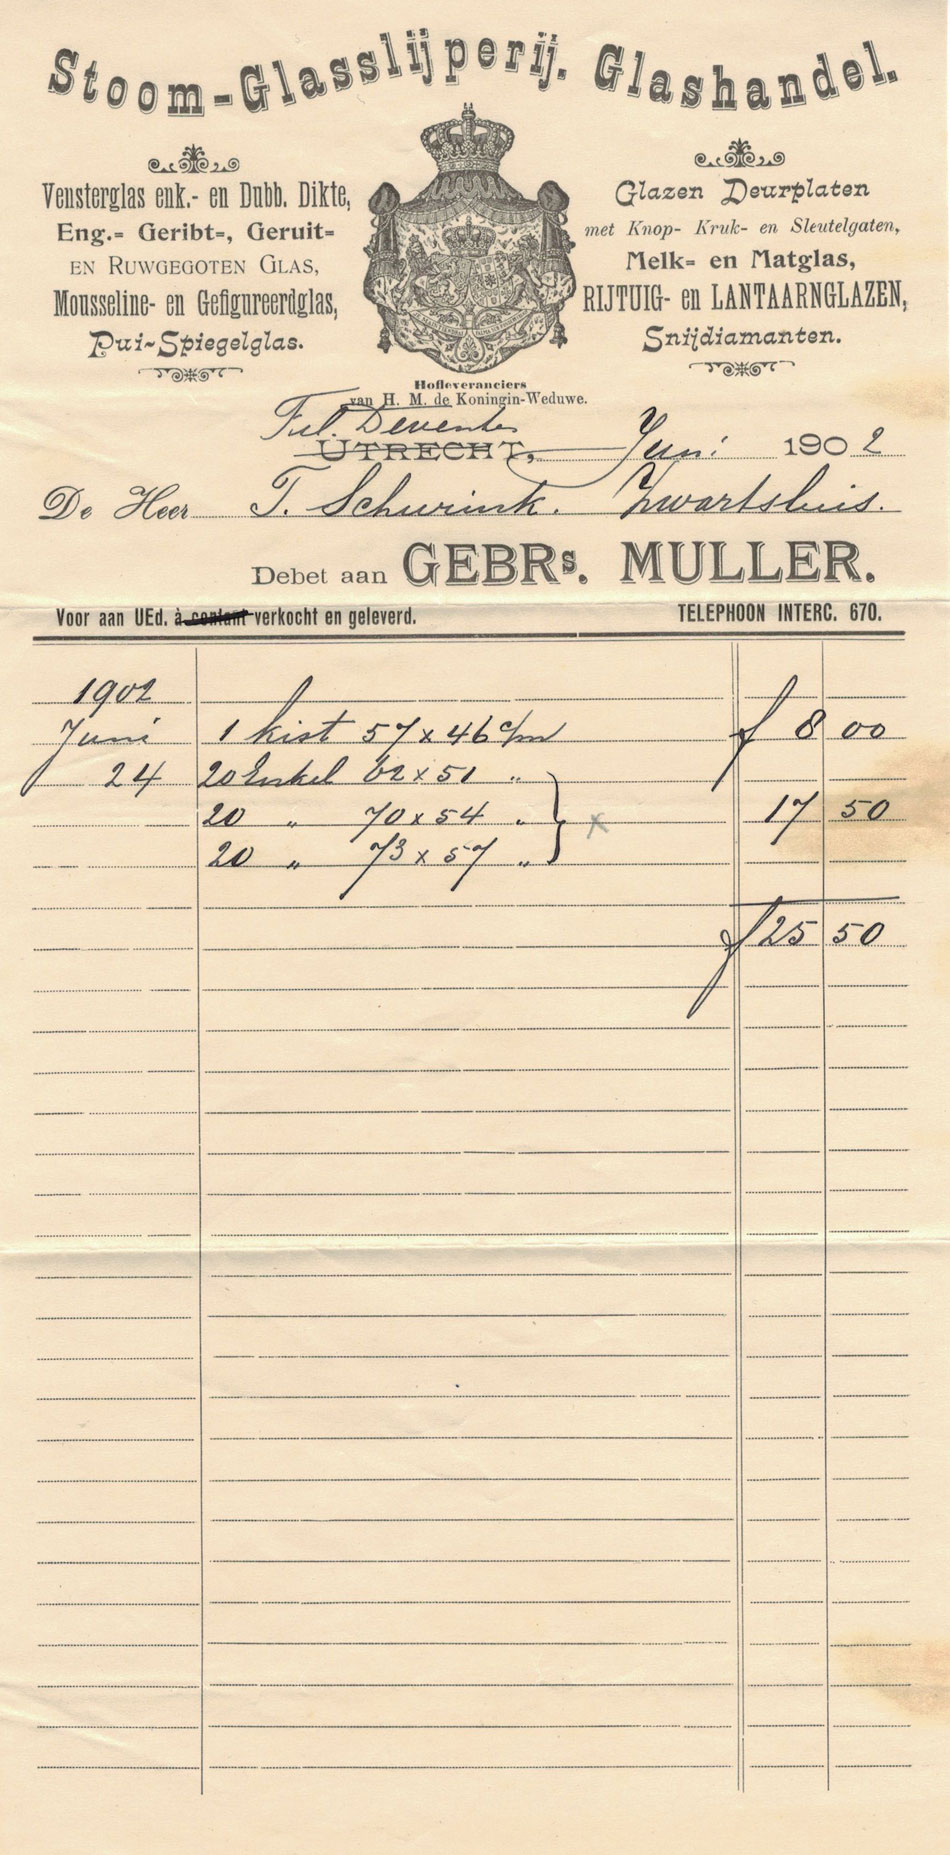 Stoom-Glasslijperij. Glashandel.
Vensterglas enk.- en Dubb. Dikte,
Eng.= Geribt=, Geruit=
EN RUWGEGOTEN GLAS,
Mousseline- en Gefigureerdglas,
Pui-Spiegelglas.
Glazen Deurplaten
met Knop- Kruk- en Sleutelgaten,
Melk= en Matglas,
RIJTUIG- en LANTAARNGLAZEN,
Snijdiamanten.
Hofleveranciers
van H. M. de Koningin-Weduwe.
Fil. Deventer
UTRECHT, Juni 1902
De Heer T. Schurink. Zwartsluis.
Debet aan GEBRs. MULLER.
Voor aan UEd. à contant verkocht en geleverd. TELEPHOON INTERC. 670.
1902
Juni 1 kist 57 x 46 c/m f 8 00
24 20 Enkel 62 x 51 "
20 " 70 x 54 " } x 17 50
20 " 73 x 57 "
f 25 50